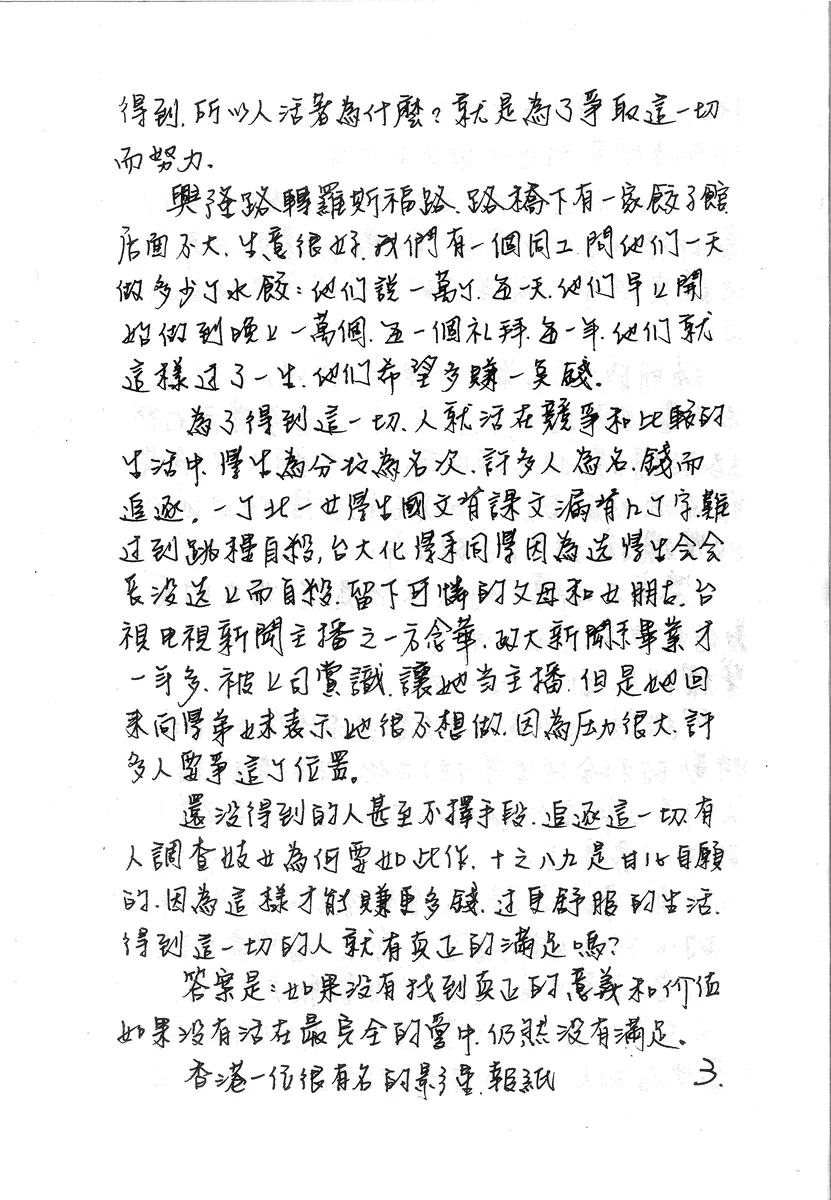 得到.所以人活著為什麼?就是為了爭取這一切
而努力.
興隆路轉羅斯福路.路橋下有一家餃子館.
店面不大.生意很好.我們有一個同工.問他们一天
做多少个水餃:他们説一萬个.每一天.他们早上開
始做到晚上一萬個.每一個礼拜.每一年.他们就
這樣过了一生.他们希望多賺一奌錢.
為了得到這一切.人就活在競爭和比較的
生活中.學生為分攻為名次.許多人為名.錢而
追逐。一个北一女學生國文背課文漏背几个字.難
过到跳樓自殺,台大化學系同學因為选學生会会
長没选上而自殺.留下可憐的父母和女朋友.台
視电視新聞主播之一方念華.政大新聞系畢業才
一年多.被上司賞識.讓她当主播.但是她回
来向學弟妹表示她很不想做.因為压力很大.許
多人要爭這个位置。
還没得到的人甚至不擇手段.追逐這一切.有
人調查妓女為何要如此作.十之八九是甘心自願
的.因為這樣才能賺更多錢.过更舒服的生活.
得到這一切的人就有真正的滿足嗎?
答案是:如果没有找到真正的意義和价值
如果没有活在最完全的當中.仍然没有滿足。
香港一位很有名的影星.報紙
3.